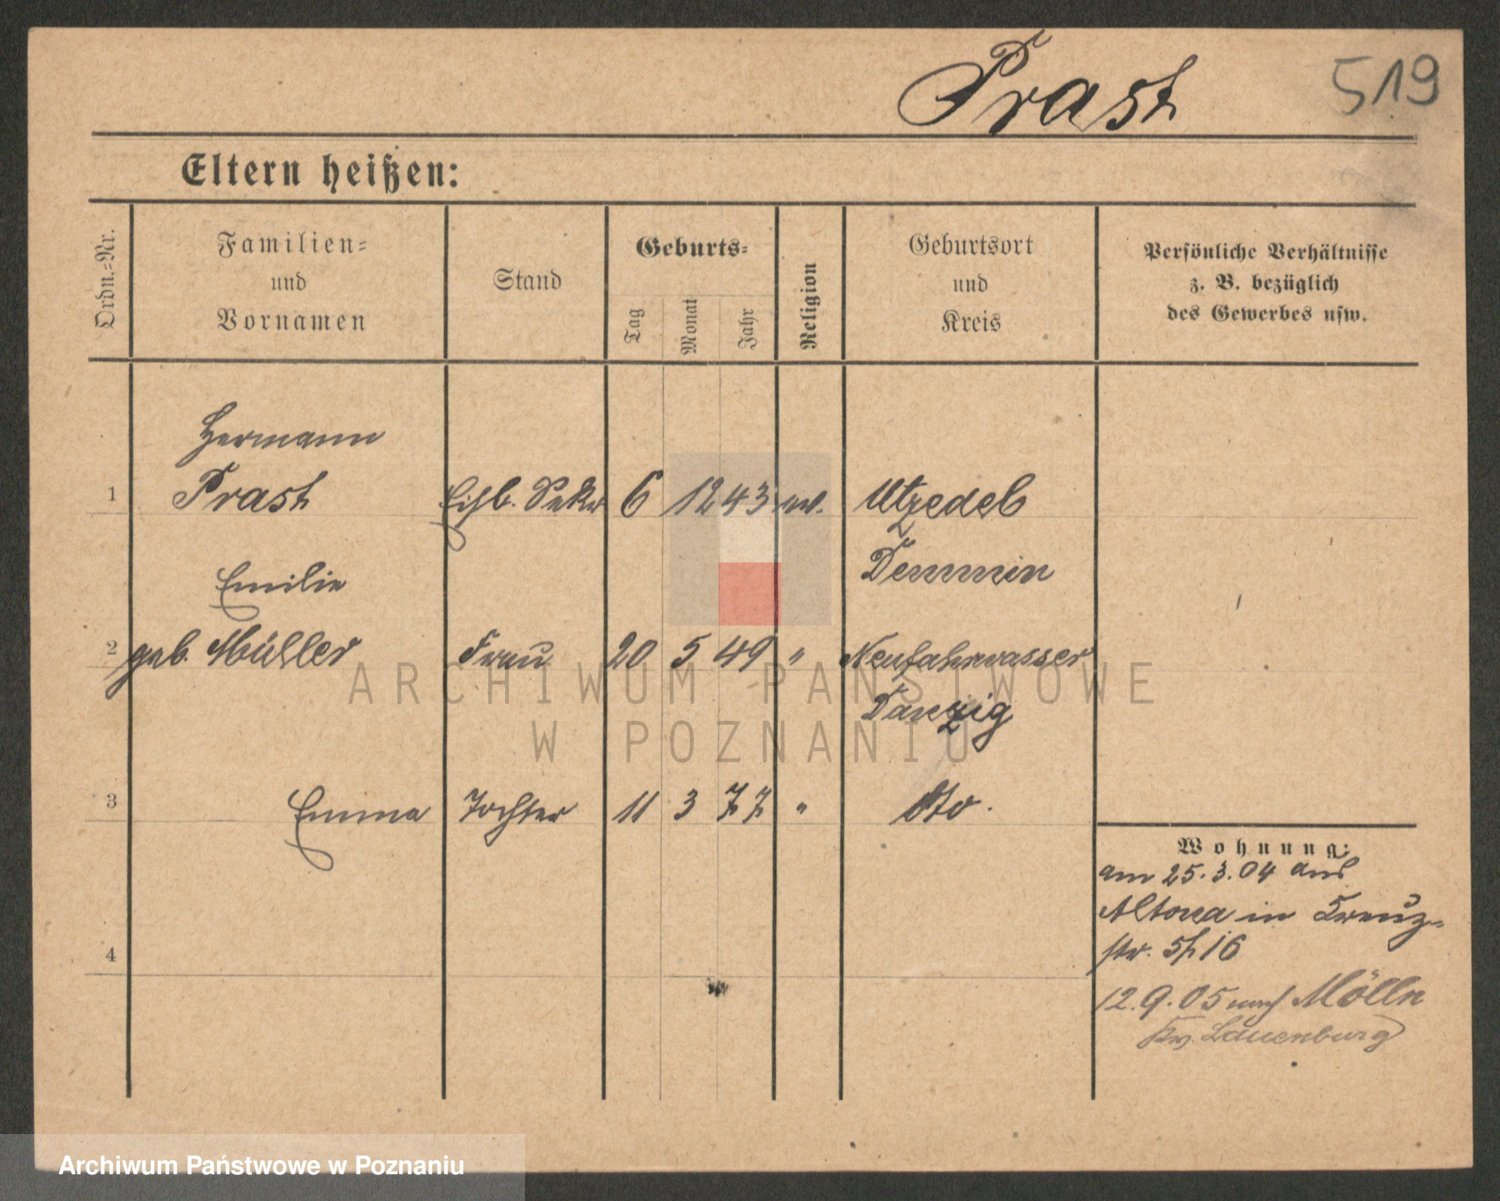 Prast
519
Eltern heißen:
Ordn.-Nr.
Familien-
und
Vornamen
Stand
Geburts-
Tag
Monat
Jahr
Religion
Geburtsort
und
Kreis
Persönliche Verhältnisse
z. B. bezüglich
des Gewerbes usw.
Hermann
1 Prast Eisb. Sekr 6 12 43 ev. Utzedel
Demmin
Emilie
2 geb. Müller Frau 20 5 49 " Neufahrwasser
Danzig
3 Emma Tochter 11 3 77 " dto.
4
Wohnung:
am 25.3.04 aus
Altona in Kreuz-
str. 5/16
12.9.05 nach Mölln
Kr. Lauenburg
ARCHIWUM PAŃSTWOWE
W POZNANIU
Archiwum Państwowe w Poznaniu